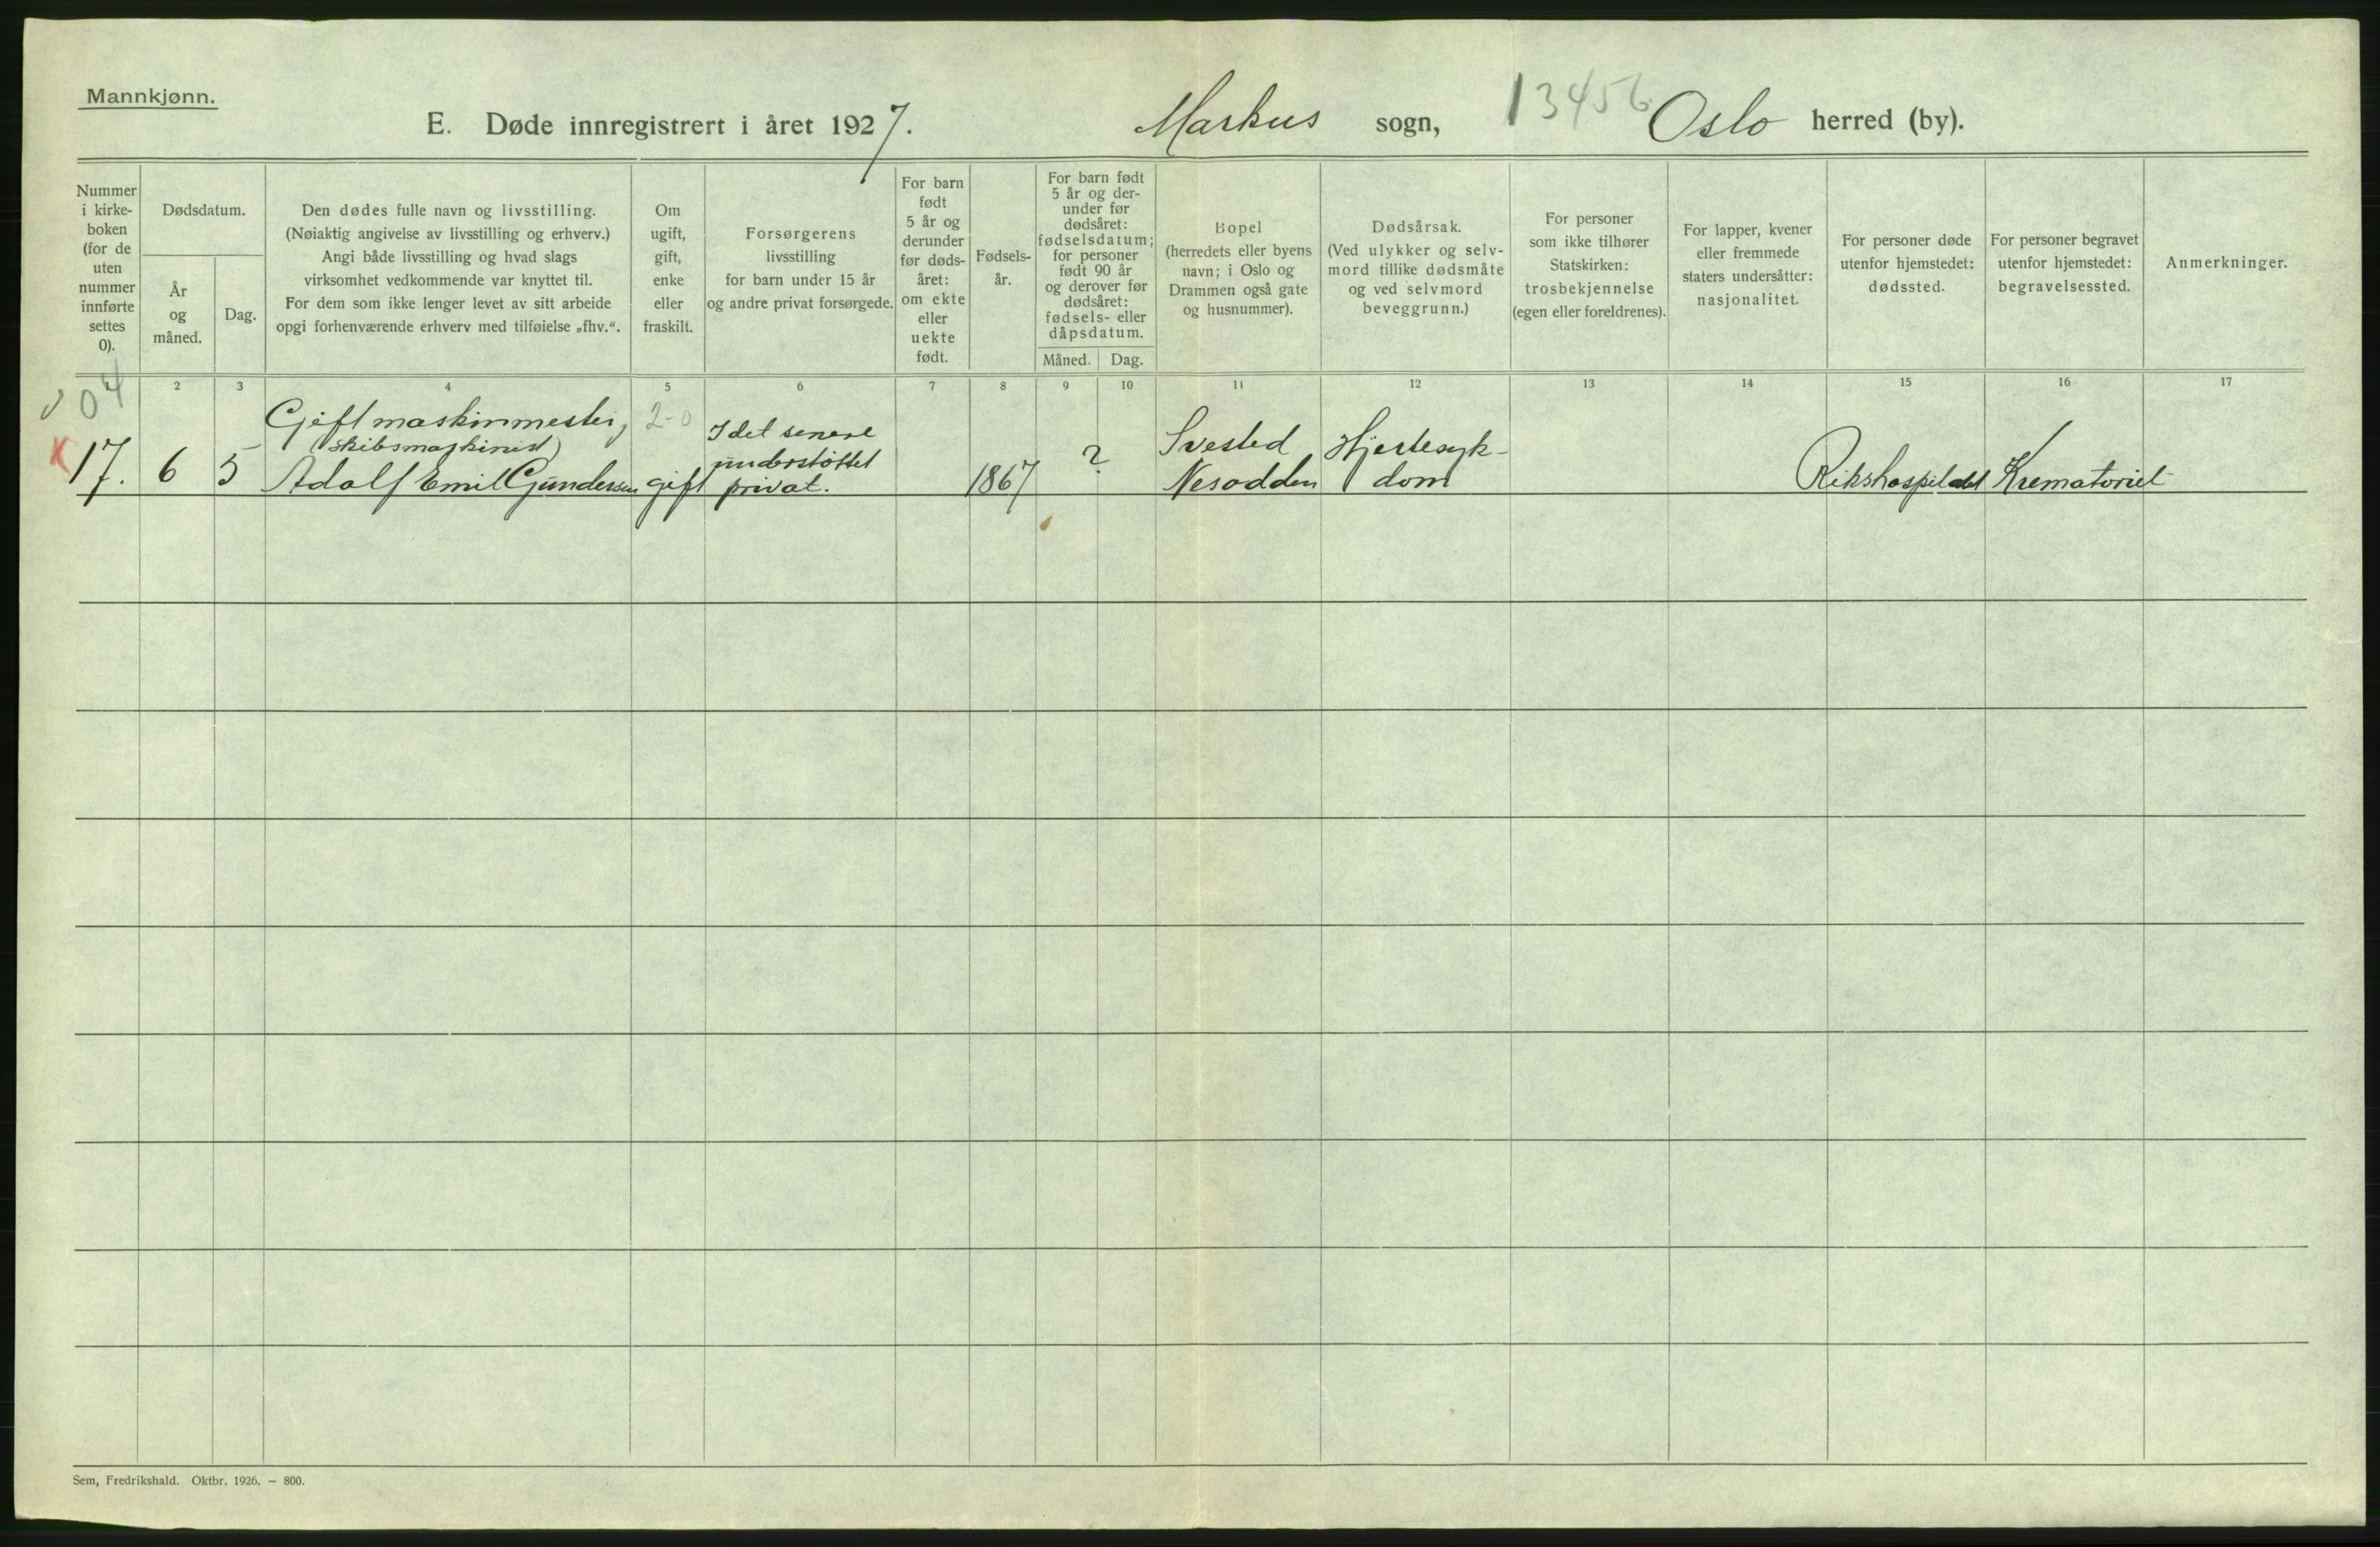 Mannkjønn.
E. Døde innregistrert i året 1927.
Markus sogn,
13456
Oslo herred (by).
Nummer
i kirke-
boken
(for de
uten
nummer
innførte
settes
0).
Dødsdatum.
År
og
måned.
Dag.
Den dødes fulle navn og livsstilling.
(Nøiaktig angivelse av livsstilling og erhverv.)
Angi både livsstilling og hvad slags
virksomhet vedkommende var knyttet til.
For dem som ikke lenger levet av sitt arbeide
opgi forhenværende erhverv med tilføielse „fhv.“.
Om
ugift,
gift,
enke
eller
fraskilt.
Forsørgerens
livsstilling
for barn under 15 år
og andre privat forsørgede.
For barn
født
5 år og
derunder
før døds-
året:
om ekte
eller
uekte
født.
Fødsels-
år.
For barn født
5 år og der-
under før
dødsåret:
fødselsdatum;
for personer
født 90 år
og derover før
dødsåret:
fødsels- eller
dåpsdatum.
Måned.
Dag.
Bopel
(herredets eller byens
navn; i Oslo og
Drammen også gate
og husnummer).
Dødsårsak.
(Ved ulykker og selv-
mord tillike dødsmåte
og ved selvmord
beveggrunn.)
For personer
som ikke tilhører
Statskirken:
trosbekjennelse
(egen eller foreldrenes).
For lapper, kvener
eller fremmede
staters undersåtter:
nasjonalitet.
For personer døde
utenfor hjemstedet:
dødssted.
For personer begravet
utenfor hjemstedet:
begravelsessted.
Anmerkninger.
2 3 4 5 6 7 8 9 10 11 12 13 14 15 16 17
04
17.
6
5
Gift maskinmester,
(skibsmaskinist)
Adolf Emil Gundersen
2-0
gift
I det senere
understøttet
privat.
1867
?
Svested
Nesodden
Hjertesyk-
dom
Rikshospitalet
Krematoriet
Sem, Fredrikshald. Oktbr. 1926. — 800.